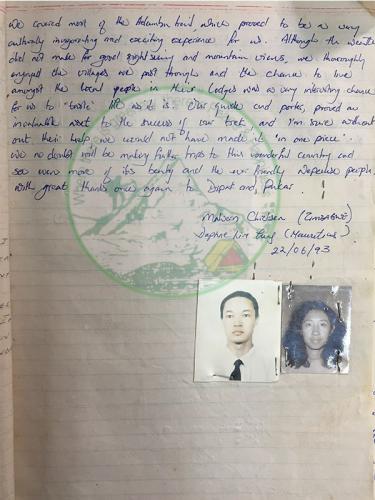 We covered most of the Helambu trail which proved to be a very
culturally invigorating and exciting experience for us. Although the weather
did not make for good sight seeing and mountain views, we thoroughly
enjoyed the villages we past through and the chance to live
amongst the local people in their lodges was a very interesting chance
for us to "taste" life as it is. Our guide and porter, proved an
invaluable asset to the success of our trek, and I'm sure without
out their help we would not have made it "in one piece".
We no doubt will be making further trips to this wonderful country and
see more of its beauty and the ever friendly Nepalese people.
With great thanks once again to Dipat and
(ZIMBABWE)
Daphne (Mauritius)
22/06/93